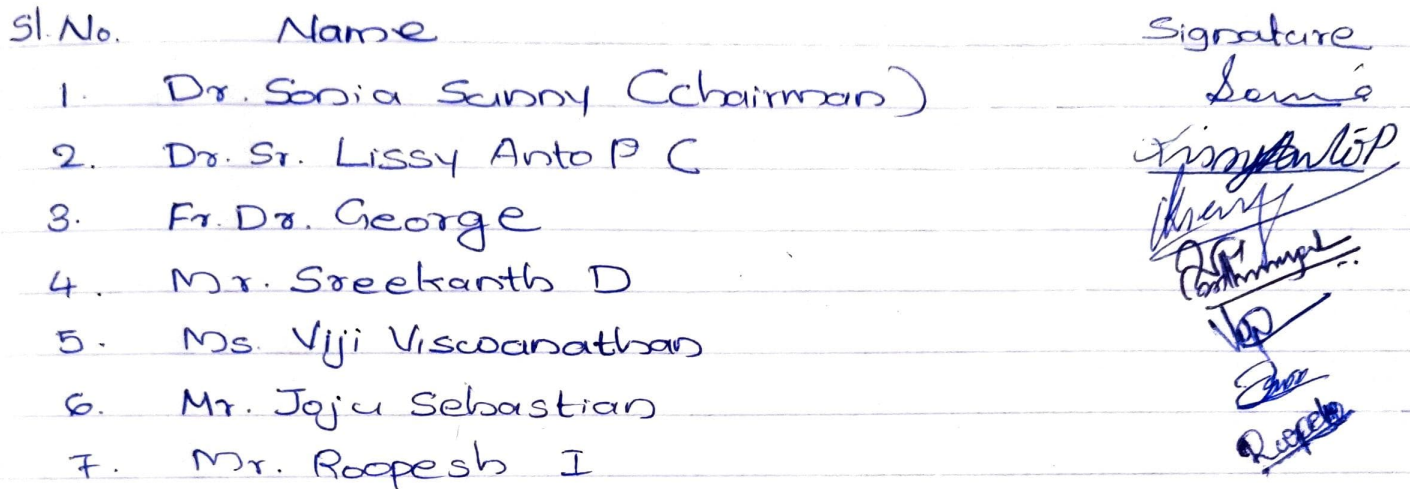 Sl. No. Name Signature
1. Dr. Sonia Sunny (chairman) Sonia
2. Dr. Sr. Lissy Anto P C LissyAntoP
3. Fr. Dr. George
4. Mr. Sreekanth D
5. Ms. Viji Viswanathan
6. Mr. Jaju Sebastian
7. Mr. Roopesh I Roopesh